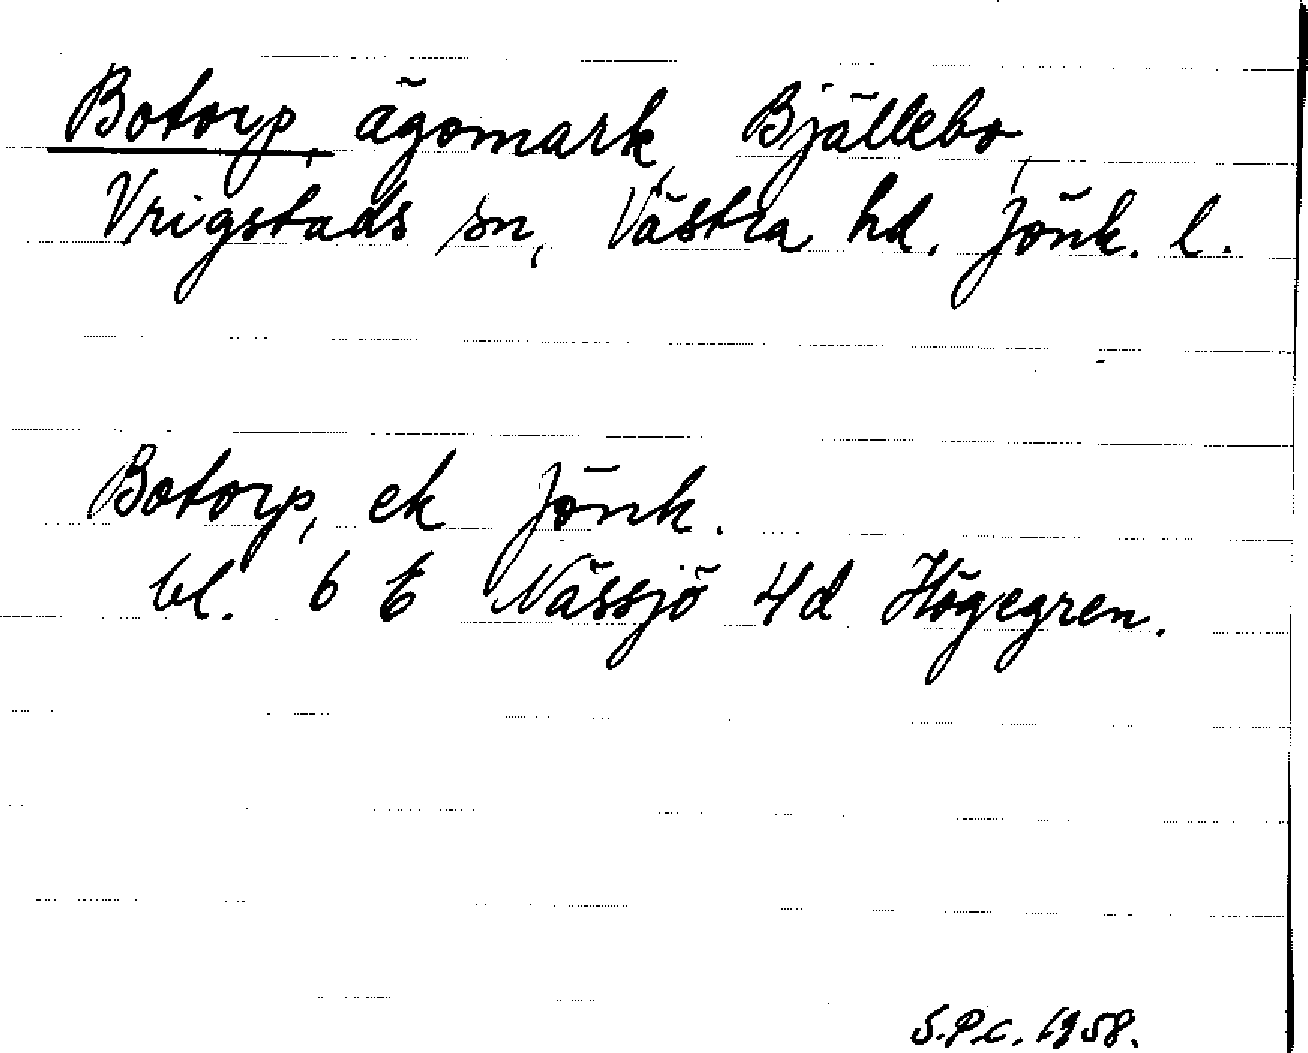 Botorp, ägomark, Bjällebo,
Vrigstads sn, Västra hd. Jönk. l.
Botorp, ek Jönk.
bl. 6 E Nässjö 4d Högegren.
S.P.C. 1958.